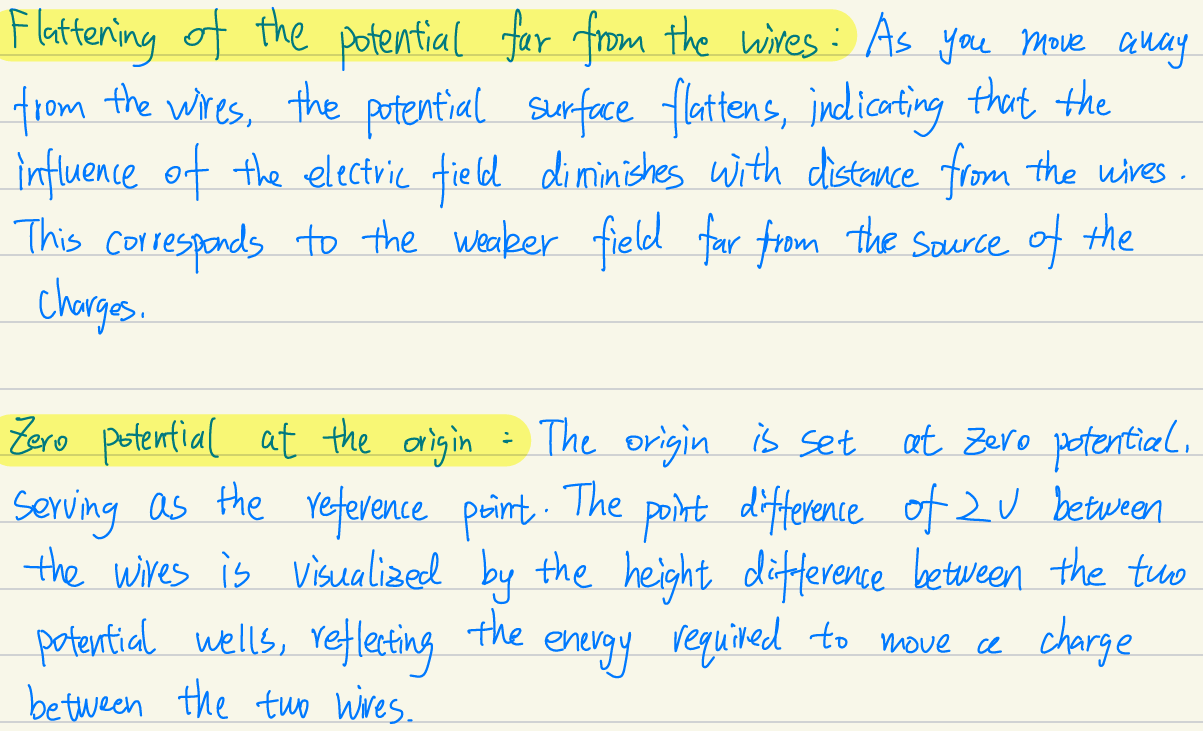 Flattening of the potential far from the wires: As you move away
from the wires, the potential surface flattens, indicating that the
influence of the electric field diminishes with distance from the wires.
This corresponds to the weaker field far from the source of the
charges.
Zero potential at the origin: The origin is set at zero potential,
serving as the reference point. The point difference of 2V between
the wires is visualized by the height difference between the two
potential wells, reflecting the energy required to move a charge
between the two wires.